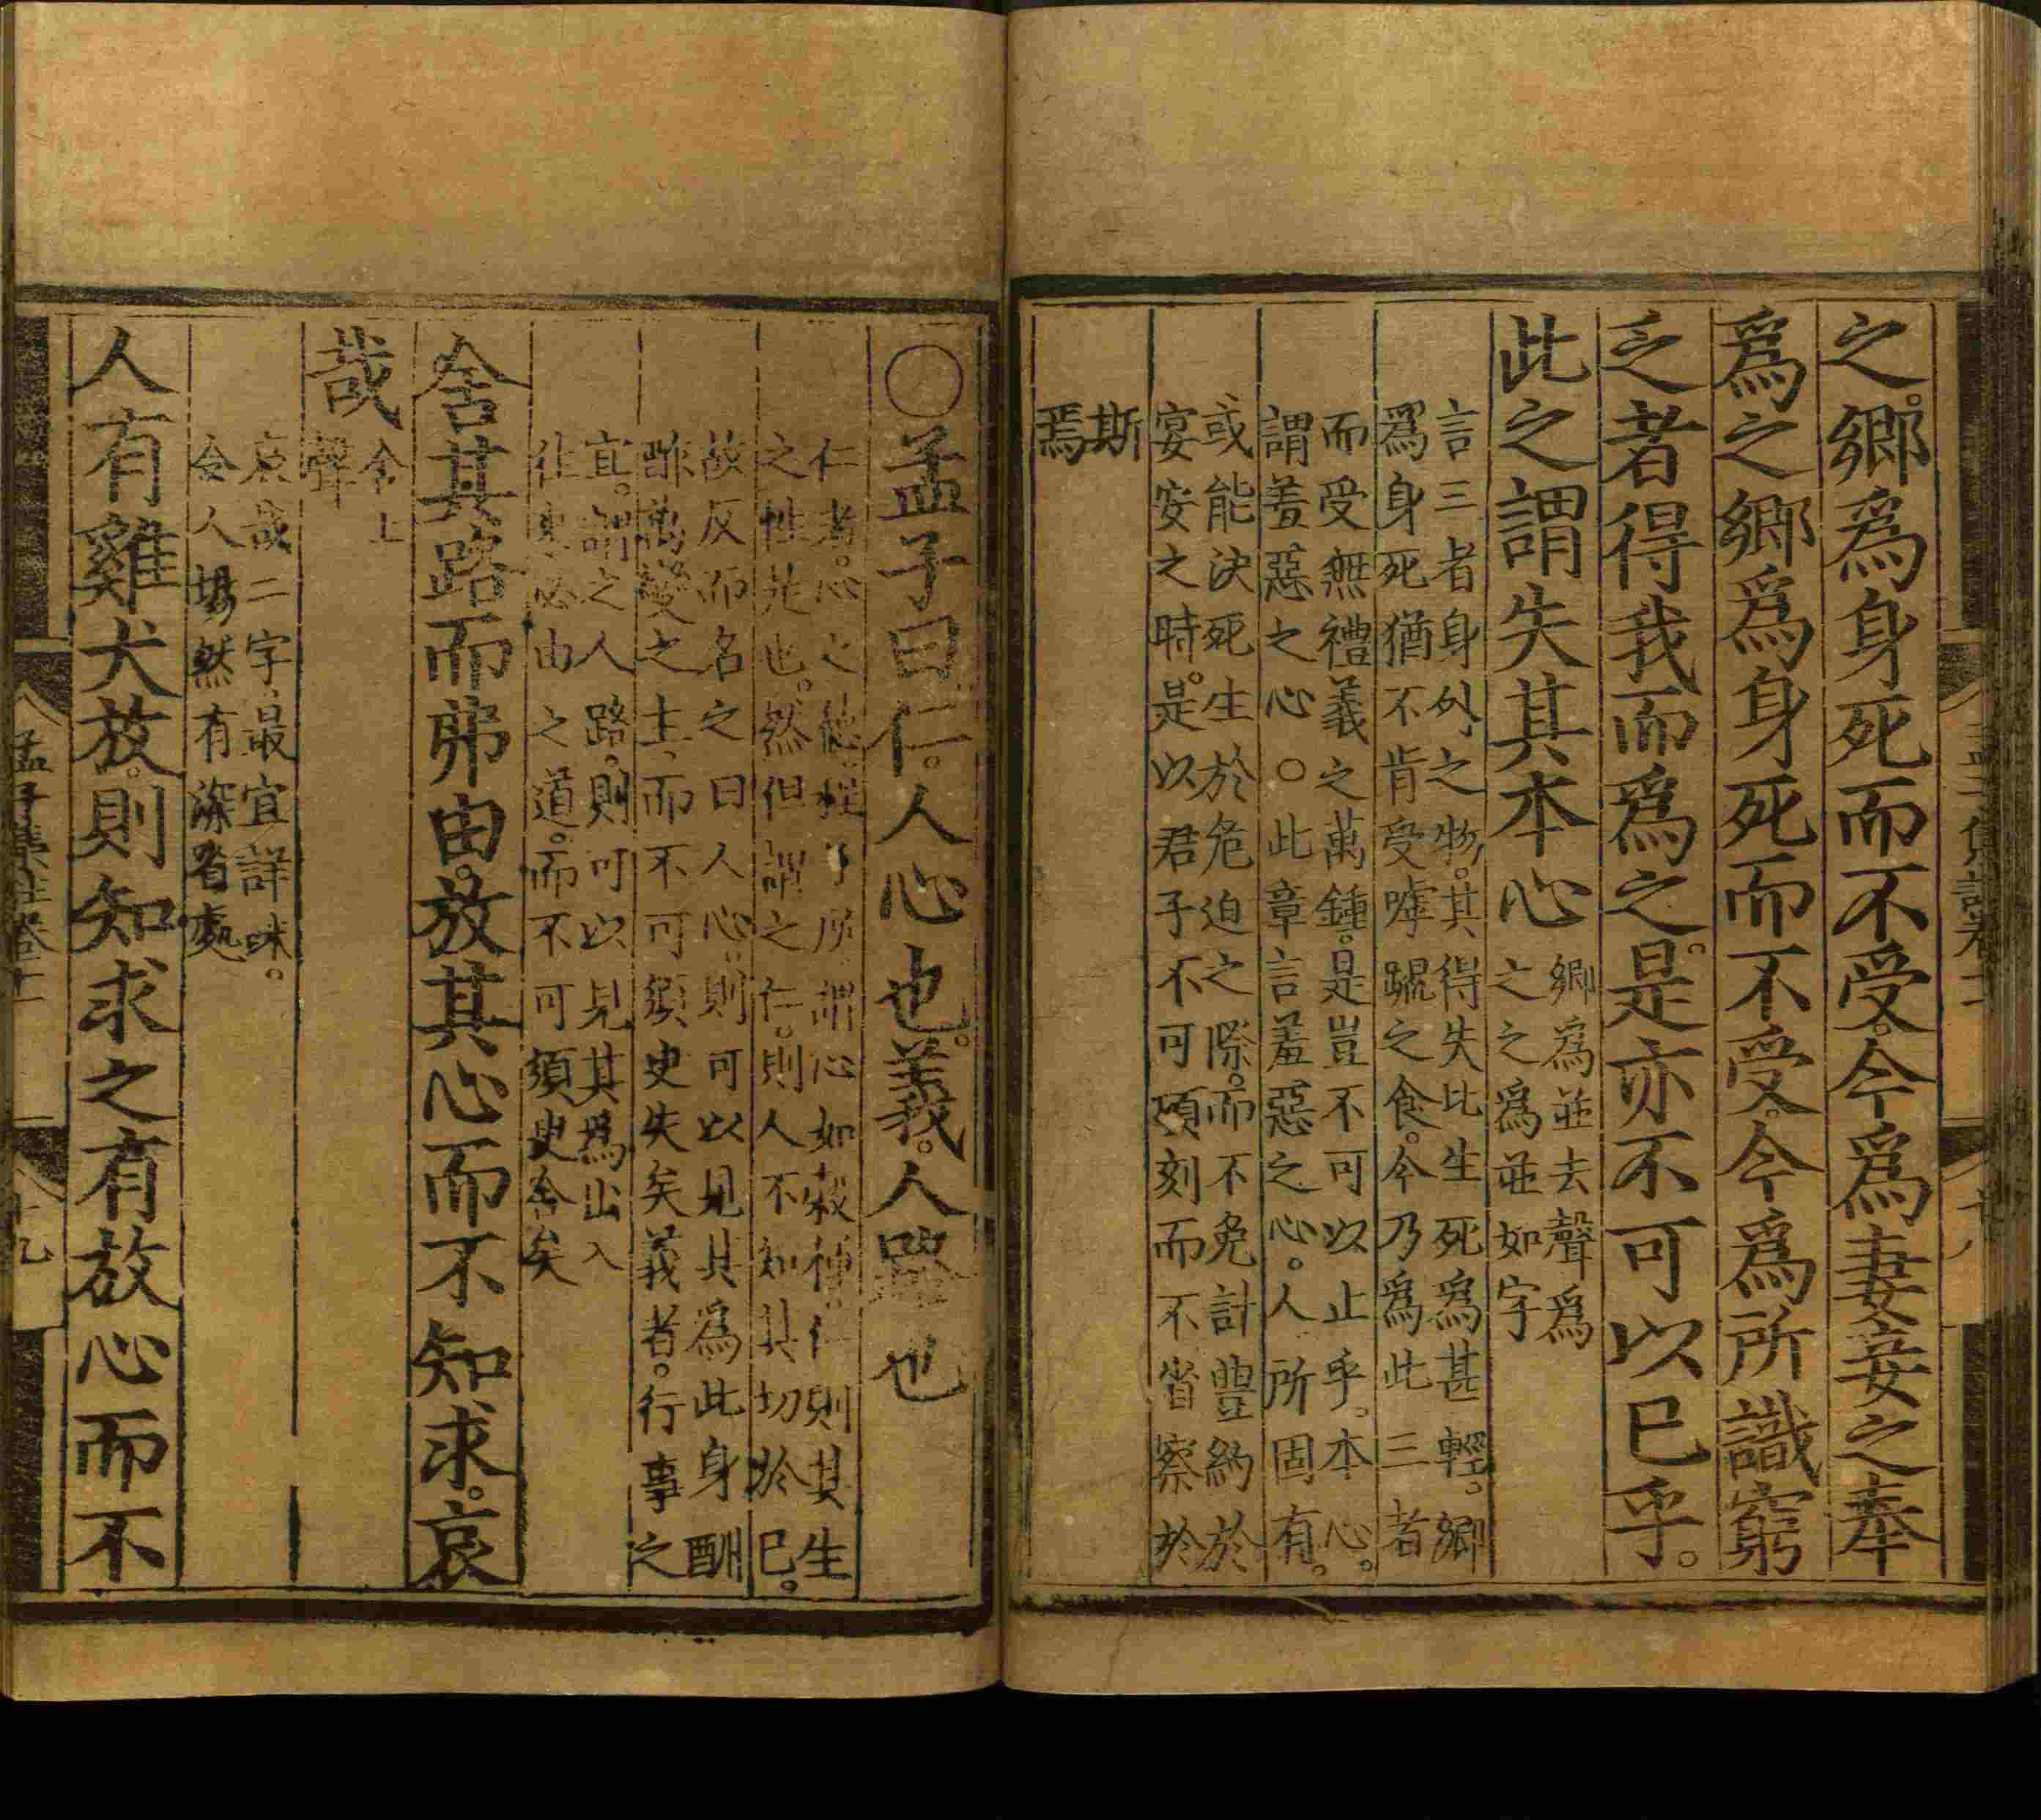 之。鄉爲身死而不受。今爲妻妾之奉
爲之鄉爲身死而不受。今爲所識窮
乏者得我而爲之。是亦不可以已乎。
此之謂失其本心
鄉爲並去聲爲
之之爲並如字
言三者身外之物。其得失比生死爲甚輕。鄉
爲身死猶不肯受嘑蹴之食。今乃爲此三者
而受無禮義之萬鍾。是豈不可以止乎。本心。
謂羞惡之心。○此章言羞惡之心。人所固有。
或能決死生於危迫之際。而不免計豐約於
宴安之時。是以君子不可頃刻而不省察於
斯
焉
○孟子曰仁。人心也。義。人路也
仁者。心之德。程子所謂心如穀種。仁則其生
之性是也。然但謂之仁。則人不知其切於已。
故反而名之曰人心。則可以見其爲此身酬
酢萬變之主、而不可須臾失矣義者。行事之
宜。謂之人路。則可以見其爲出入
往來必由之道。而不可須臾舍矣
舍其路而弗由。放其心而不知求。哀
哉
舍上
聲
哀哉二字、最宜詳味。
令人惕然有深省處
人有雞犬放。則知求之有放心而不
孟子集註卷十一
十九